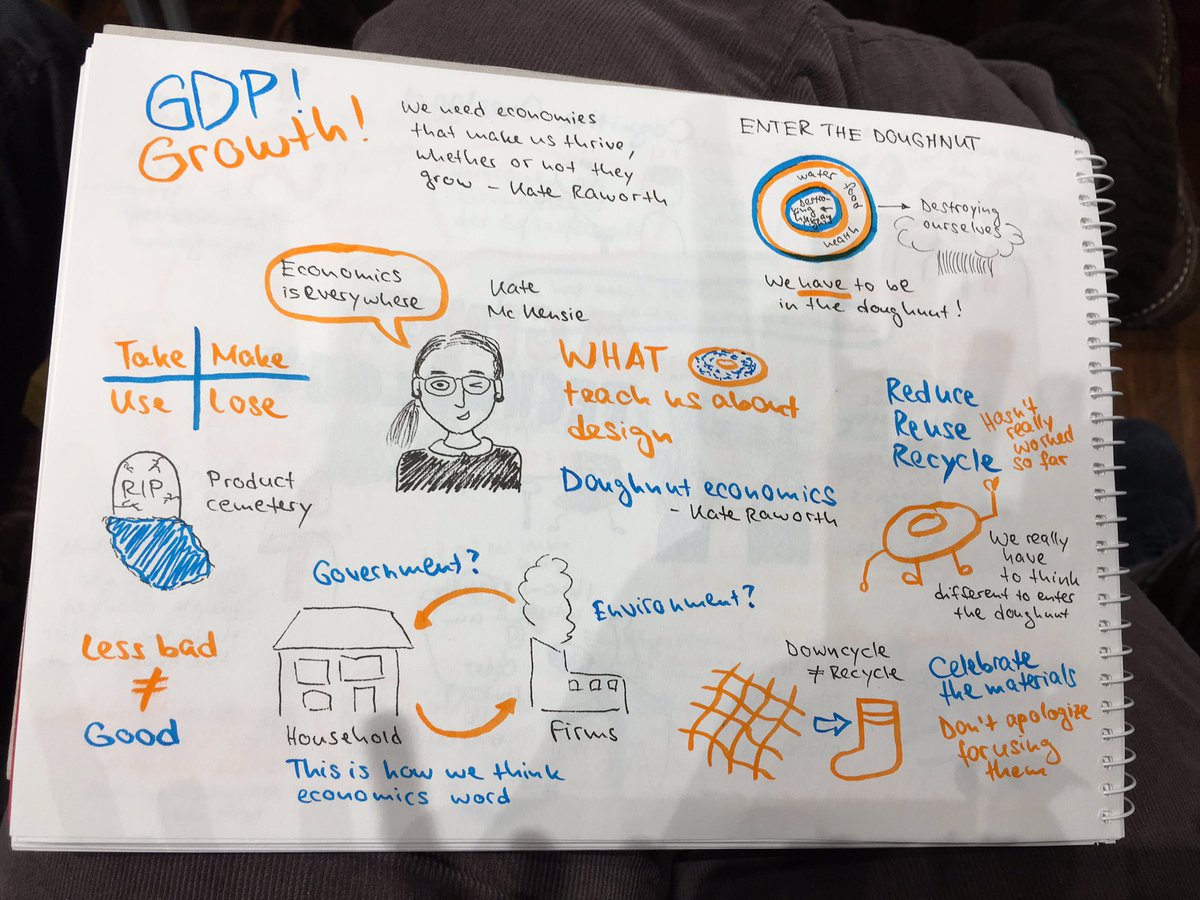 GDP!
Growth!
We need economies
that make us thrive,
whether or not they
grow – Kate Raworth
ENTER THE DOUGHNUT
water
food
health
Destroying
ourselves
We have to be
in the doughnut!
Economics
is everywhere
Kate
McKensie
Take Make
Use Lose
WHAT
teach us about
design
Doughnut economics
- Kate Raworth
Reduce
Reuse
Recycle
Hasn't
really
worked
so far
RIP
Product
cemetery
We really
have
to think
different to enter
the doughnut
Government?
Environment?
Household
Firms
This is how we think
economics word
Less bad
≠
Good
Downcycle
≠ Recycle
Celebrate
the materials
Don't apologize
for using
them